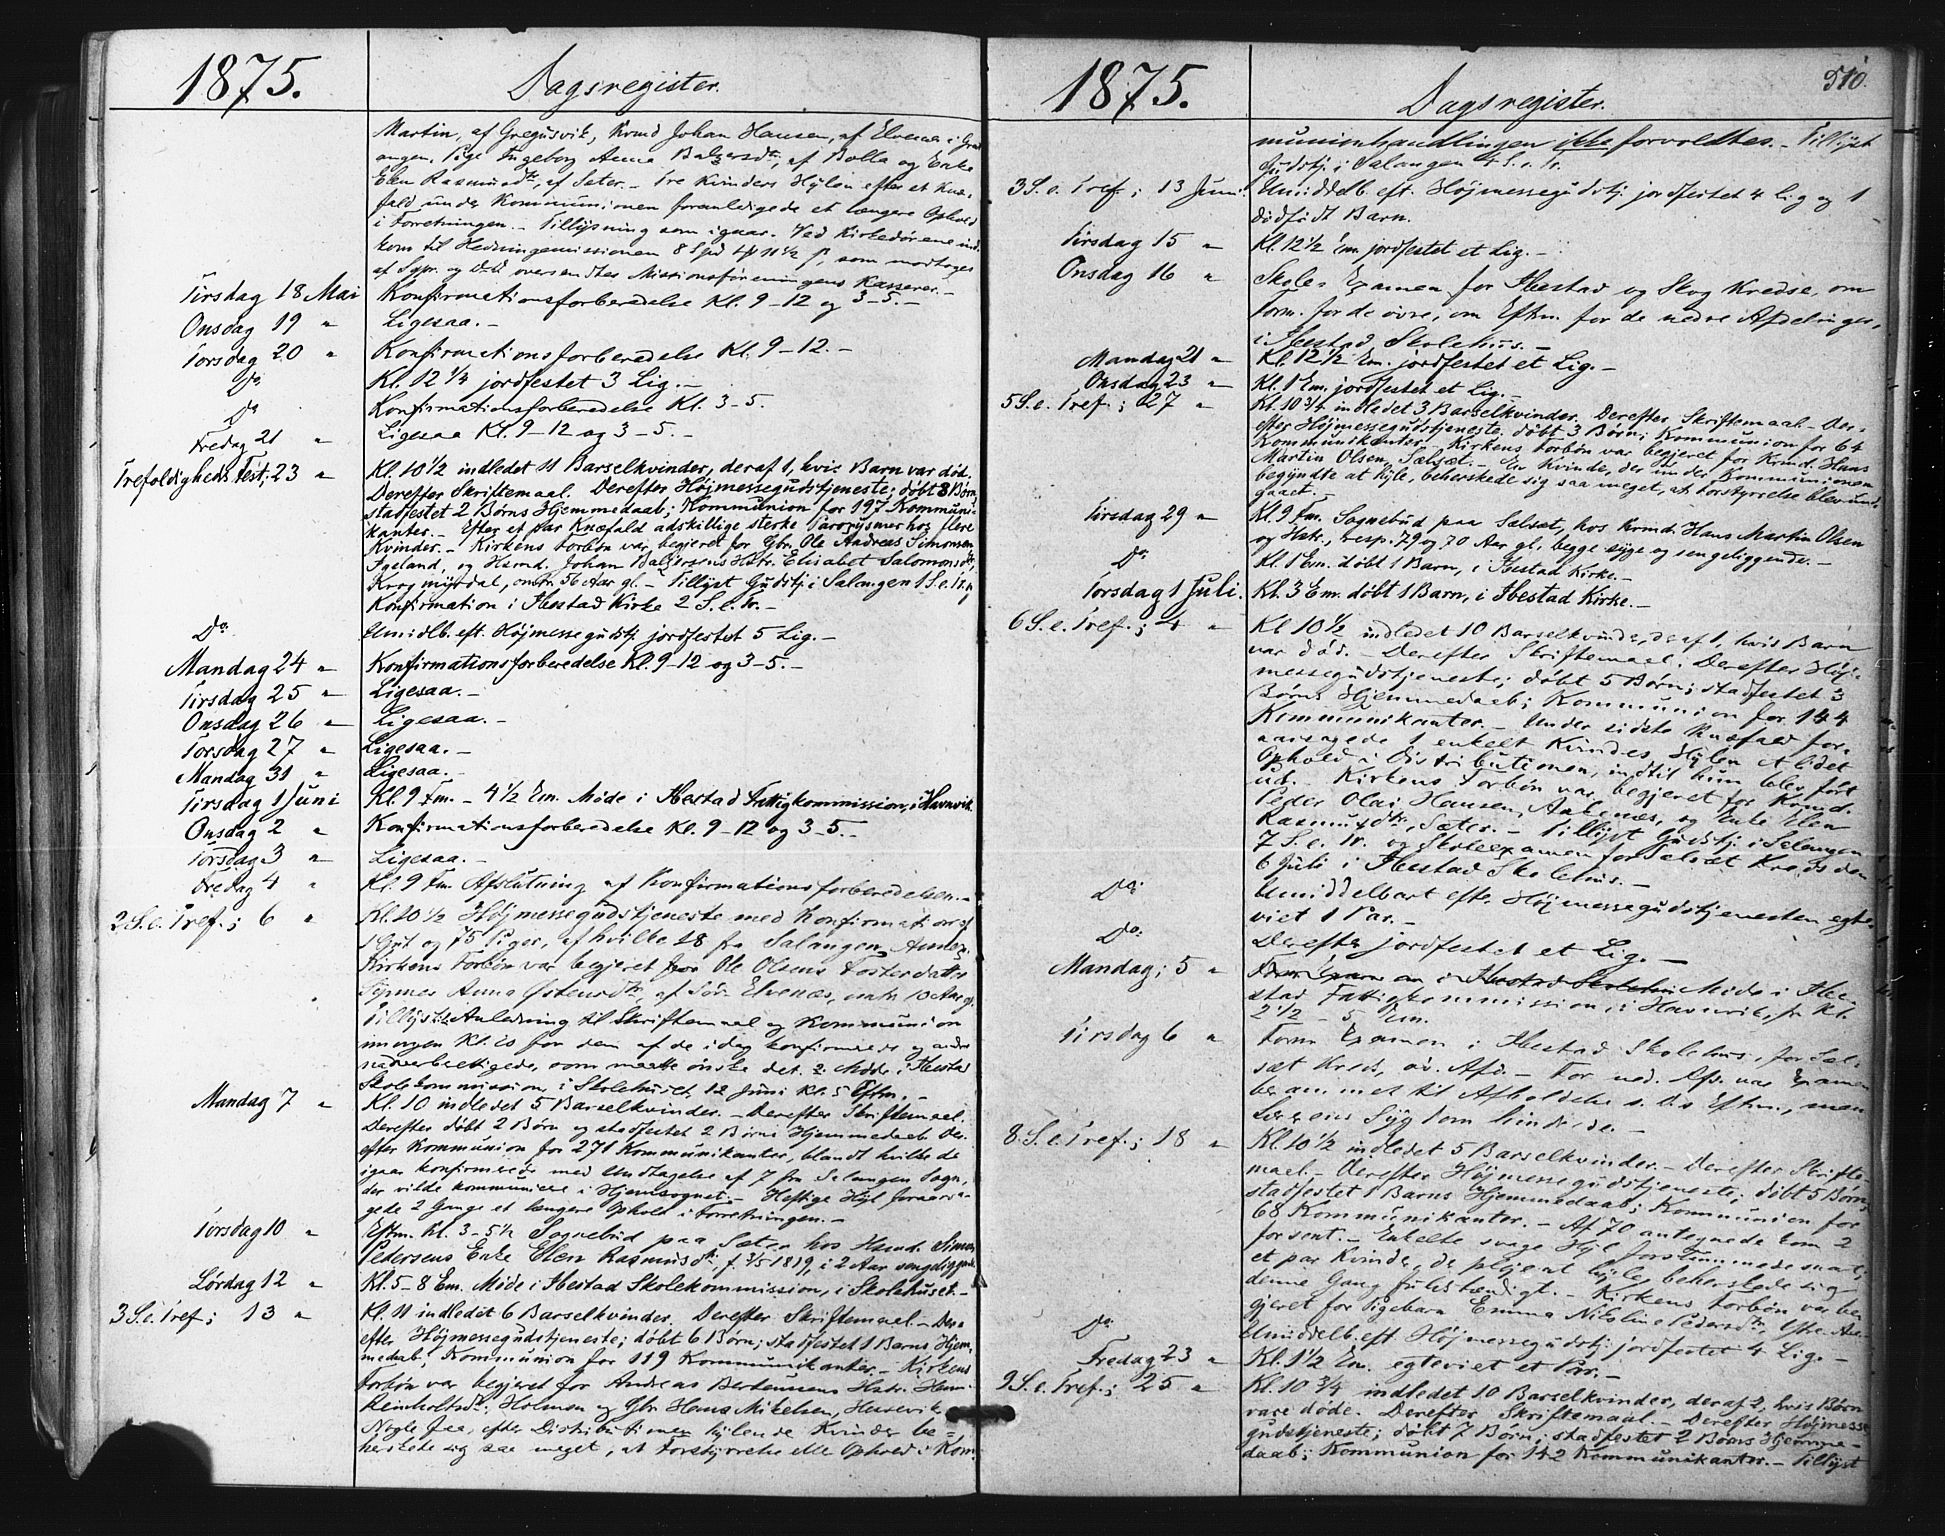 1875.
Dagsregister.
Martin, af Gregusvik, Krmd Johan Hansen, af Elvenes i Grat-
angen, Pige Ingeborg Anna Balzersdtr, af Bolla og Enke
Elen Rasmusdtr, af Sæter. – Tre Kvinders Hylen efter et Knæ-
fald under Kommunionen foranledigede et længere Ophold
i Forretningen. – Tillysning som igaar. Ved Kirkedørene ind-
kom til Hedningemissionen 8 Spd 4 11½ β, som modtoges
af Sgpr. og oversendtes Missionsforeningens Kasserer. –
Tirsdag 18 Mai Konfirmationsforberedelse Kl. 9–12 og 3–5. –
Onsdag 19 " Ligesaa. –
Torsdag 20 " Konfirmationsforberedelse Kl. 9–12. –
Do Kl. 12¼ jordfestet 3 Lig. –
Do Konfirmationsforberedelse Kl. 3–5.
Fredag 21 " Ligesaa Kl. 9–12 og 3–5. –
Trefoldigheds Fest; 23 " Kl. 10½ indledet 11 Barselkvinder, deraf 1, hvis Barn var død.
Derefter Skriftemaal. Derefter Højmessegudstjeneste; døbt 8 Børn;
stadfestet 2 Børns Hjemmedaab; Kommunion for 197 Kommuni-
kanter. – Efter et par Knæfald adskillige sterke Paroxysmer hos flere
Kvinder. – Kirkens Forbøn var begjeret for Gbr. Ole Andreas Simonsen
Igeland, og Hsmd. Johan Balzersens Hstr. Elisabet Salomonsdtr,
Krogmyrdal, omtr. 56 Aar gl. – Tillyst Gudstj. i Salangen 1 S. e. Tr. og
Konfirmation i Ibestad Kirke 2 S. e. Tr. –
Do Umidlb. eft. Højmessegudstj. jordfestet 5 Lig. –
Mandag 24 " Konfirmationsforberedelse Kl. 9–12 og 3–5. –
Tirsdag 25 " Ligesaa. –
Onsdag 26 " Ligesaa. –
Torsdag 27 " Ligesaa. –
Mandag 31 " Ligesaa. –
Tirsdag 1 Juni Kl. 9 Fm. – 4½ Em. Møde i Ibestad Fattigkommission, i Havnvik.
Onsdag 2 " Konfirmationsforberedelse Kl. 9–12 og 3–5. –
Torsdag 3 " Ligesaa. –
Fredag 4 " Kl. 9 Fm Afslutning af Konfirmationsforberedelsen. –
2 S. e. Tref.; 6 " Kl. 10½ Højmessegudstjeneste med Konfirmation af
1 Gut og 75 Piger, af hvilke 18 fra Salangen Annex.
Kirkens Forbøn var begjeret for Ole Olsens Fosterdatter
Anna Østensdtr, af Elvenæs, omtr. 10 Aar gl.
Tillyst Anledning til Skriftemaal og Kommunion
morgen Kl. 10 for dem af de idag konfirmerede og andre
nadverberettigede, som maatte ønske det. 2 Møde i Ibestad
Skolekommission i Skolehuset, 12 Juni Kl. 5 Eftm. –
Mandag 7 " Kl. 10 indledet 5 Barselkvinder. – Derefter Skriftemaal.
Derefter døbt 2 Børn og stadfestet 2 Børns Hjemmedaab. Der-
efter Kommunion for 271 Kommunikanter, blandt hvilke de
igaar konfirmerede med Undtagelse af 7 fra Salangen Sogn,
der vilde kommunicere i Hjemsognet. – Heftige Hyl foraarsa-
gede 2 Gange et længere Ophold i Forretningen. –
Torsdag 10 " Eftm. Kl. 3–5½ Sognebud paa Sæter hos Hsmd. Simon
Pedersens Enke Elen Rasmusdtr, f. 3/5 1819, i 2 Aar sengeliggende.
Lørdag 12 " Kl. 5–8 Em. Møde i Ibestad Skolekommission, i Skolehuset. –
3 S. e. Tref.; 13 " Kl. 11 indledet 6 Barselkvinder. Derefter Skriftemaal. – Der-
efter Højmessegudstjeneste; døbt 6 Børn; stadfestet 1 Barns Hjem-
medaab; Kommunion for 119 Kommunikanter. – Kirkens
Forbøn var begjeret for Andreas Berteussens Hstr.
Reinholtsdtr, Holmen og Gbr Hans Mikelsen,
Nogle faa, efter Distributionen hylende Kvinder be-
herskede sig saa meget, at Forstyrrelse eller Ophold i Kom-
1875.
Dagsregister.
510.
munionshandlingen ikke forvoldtes. – Tillyst
Gudstj. i Salangen 4 S. e. Tr.
3 S. e. Tref.; 13 Juni. Umiddelb. eft. Højmessegudstj. jordfestet 4 Lig og 1
dødfødt Barn.
Tirsdag 15 " Kl. 12½ Em jordfestet et Lig. –
Onsdag 16 " Skole-Examen for Ibestad og Skog Kredse, om
Form. for de øvre, om Eftm. for de nedre Afdelinger,
i Ibestad Skolehus. –
Mandag 21 " Kl. 12½ Em. jordfestet et Lig. –
Onsdag 23 " Kl. 1 Em. jordfestet et Lig. –
5 S. e. Tref.; 27 " Kl. 10¾ indledet 3 Barselkvinder. Derefter Skriftemaal – Der-
efter Højmessegudstjeneste; døbt 3 Børn; Kommunion for 64
Kommunikanter. Kirkens Forbøn var begjeret for Krmd. Hans
Martin Olsen, Sælsæt. – En Kvinde, der under Kommunionen
begyndte at hyle, beherskede sig saa meget, at Forstyrrelse blev und-
gaaet. –
Tirsdag 29 " Kl. 9 Fm. Sognebud paa Sælsæt, hos Krmd. Hans Martin Olsen
og Hstr., resp. 79 og 70 Aar gl., begge syge og sengeliggende. –
Do Kl. 1 Em. døbt 1 Barn, i Ibestad Kirke. –
Torsdag 1 Juli. Kl. 3 Em. døbt 1 Barn, i Ibestad Kirke. –
6 S. e. Tref.; 4 " Kl 10½ indledet 10 Barselkvinder, deraf 1, hvis Barn
var død. – Derefter Skriftemaal. Derefter Høj-
messegudstjeneste; døbt 5 Børn; stadfestet 3
Børns Hjemmedaab; Kommunion for 144
Kommunikanter. – Under sidste Knæfald for-
aarsagede 1 enkelt Kvindes Hylen et lidet
Ophold i Distributionen, indtil hun blev ført
ud. – Kirkens Forbøn var begjeret for Krmd.
Peder Olai Hansen, Aalenæs, og Enke Elen
Rasmusdtr, Sæter. – Tillyst Gudstj. i Salangen
7 S. e. Tr. og Skoleexamen for Sælsæt Kreds den
6 Juli i Ibestad Skolehus. –
Do Umiddelbart efter Højmessegudstjenesten egte-
viet 1 Par. –
Do Derefter jordfestet et Lig. –
Mandag; 5 " i Ibestad Skolehus Møde i Ibe-
stad Fattigkommission, i Havnvik, fr. Kl.
2½ – 5 Em.
Tirsdag 6 " Form Examen i Ibestad Skolehus, for Sæl-
sæt Kreds, øv. Afd. – For ned. Afd. var Examen
berammet til Afholdelse s. D.s Eftm., men
Lærerens Sygdom hindrede. –
8 S. e. Tref.; 18 " Kl. 10½ indledet 5 Barselkvinder. – Derefter Skrifte-
maal. – Derefter Højmessegudstjeneste; døbt 5 Børn;
stadfestet 1 Barns Hjemmedaab; Kommunion for
68 Kommunikanter. – Af 70 antegnede kom 2
for sent. – Enkelte svage Hyl forstummede snart;
et par Kvinder, de plejer at hyle, beherskede sig
denne Gang fuldstændigt. – Kirkens Forbøn var be-
gjeret for Pigebarn Emma Nilsline Pedersdtr,
Do Umiddelb. eft. Højmessegudstj. jordfestet 4 Lig. –
Fredag 23 " Kl. 1½ Em. egteviet et Par. –
9 S. e. Tref.; 25 " Kl. 10¾ indledet 10 Barselkvinder, deraf 2, hvis Børn
vare døde. Derefter Skriftemaal. – Derefter Højmesse-
gudstjeneste; døbt 7 Børn; stadfestet 2 Børns Hjemme-
daab; Kommunion for 142 Kommunikanter. – Tillyst